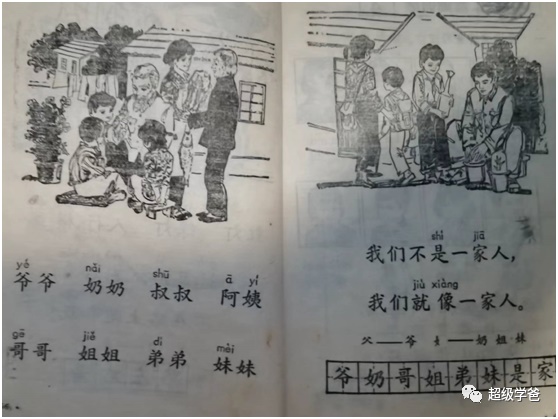 yé nǎi shū ā yí
爷爷 奶奶 叔叔 阿姨
gē jiě dì mèi
哥哥 姐姐 弟弟 妹妹
shì jiā
我们不是一家人，
jiù xiàng
我们就像一家人。
父——爷 女——奶 姐 妹
爷奶哥姐弟妹是家
超级学爸